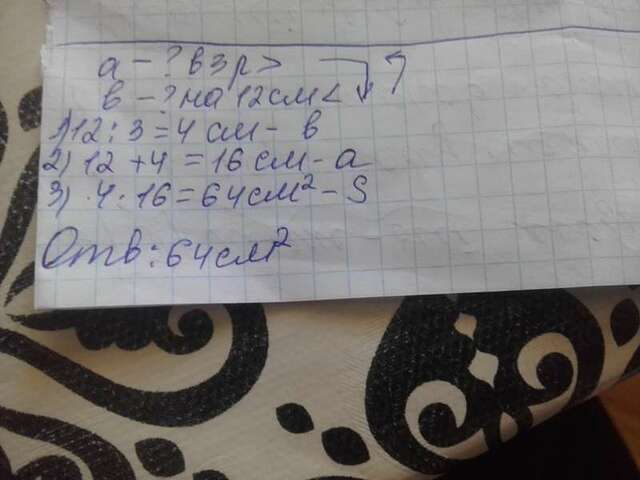 a - ? в 3 р >
в - ? на 12 см < ?
1) 12 : 3 = 4 см - в
2) 12 + 4 = 16 см - a
3) 4 · 16 = 64 см² - S
Отв: 64 см²